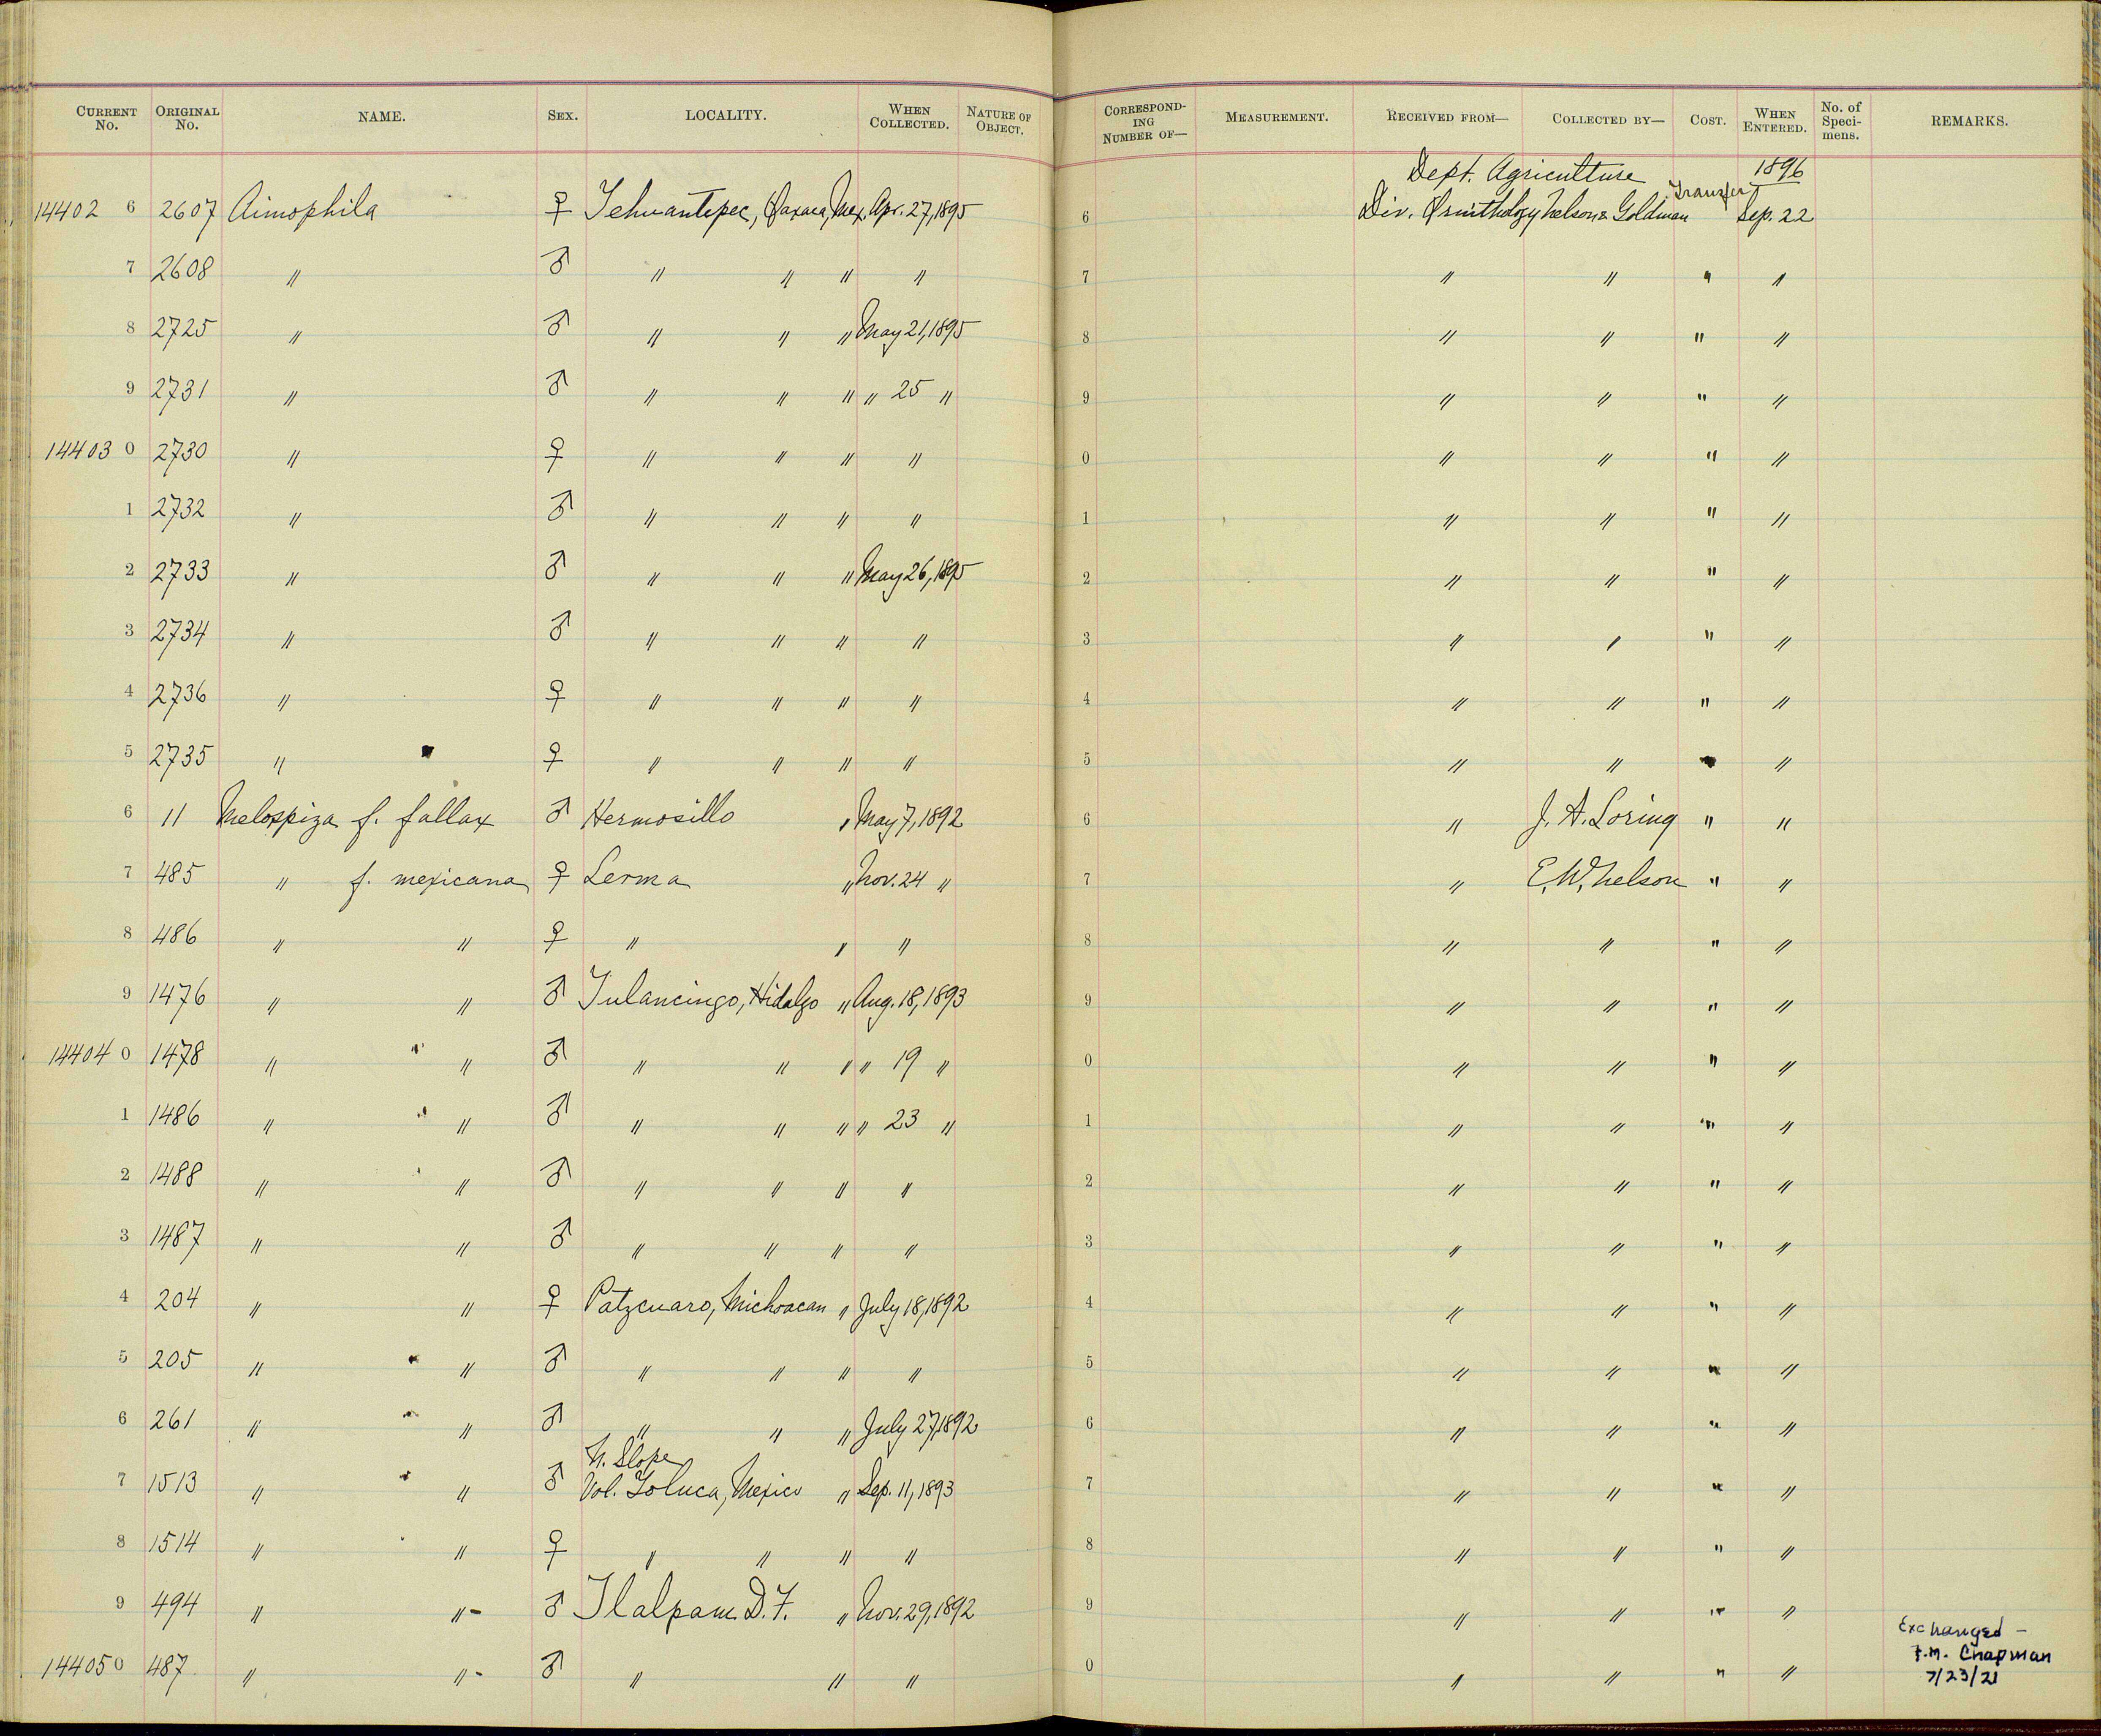 CURRENT No. ORIGINAL No. NAME. SEX. LOCALITY. WHEN COLLECTED. NATURE OF OBJECT. CORRESPONDING NUMBER OF— MEASUREMENT. RECEIVED FROM— COLLECTED BY— COST. WHEN ENTERED. No. of Specimens. REMARKS.
Dept. Agriculture 1896
14402 6 2607 Aimophila ♀ Tehuantepec, Oaxaca, Mex. Apr. 27, 1895 6 Div. Ornithology Nelson & Goldman Transfer Sep. 22
7 2608 " ♂ " " " " 7 " " " "
8 2725 " ♂ " " " May 21, 1895 8 " " " "
9 2731 " ♂ " " " " 25 " 9 " " " "
14403 0 2730 " ♀ " " " " 0 " " " "
1 2732 " ♂ " " " " 1 " " " "
2 2733 " ♂ " " " May 26, 1895 2 " " " "
3 2734 " ♂ " " " " 3 " " " "
4 2736 " ♀ " " " " 4 " " " "
5 2735 " ♀ " " " " 5 " " " "
6 11 Melospiza f. fallax ♂ Hermosillo " May 7, 1892 6 " J. A. Loring " "
7 485 " f. mexicana ♀ Lerma " Nov. 24 " 7 " E. W. Nelson " "
8 486 " " ♀ " " " 8 " " " "
9 1476 " " ♂ Tulancingo, Hidalgo " Aug. 18, 1893 9 " " " "
14404 0 1478 " " ♂ " " " " 19 " 0 " " " "
1 1486 " " ♂ " " " " 23 " 1 " " " "
2 1488 " " ♂ " " " " 2 " " " "
3 1487 " " ♂ " " " " 3 " " " "
4 204 " " ♀ Patzcuaro, Michoacan " July 18, 1892 4 " " " "
5 205 " " ♂ " " " " 5 " " " "
6 261 " " ♂ " " " July 27, 1892 6 " " " "
N. Slope
7 1513 " " ♂ Vol. Toluca, Mexico " Sep. 11, 1893 7 " " " "
8 1514 " " ♀ " " " " 8 " " " "
9 494 " " - ♂ Tlalpam D.F. " Nov. 29, 1892 9 " " " "
14405 0 487 " " - ♂ " " " 0 " " " " Exchanged –
F.M. Chapman
7/23/21